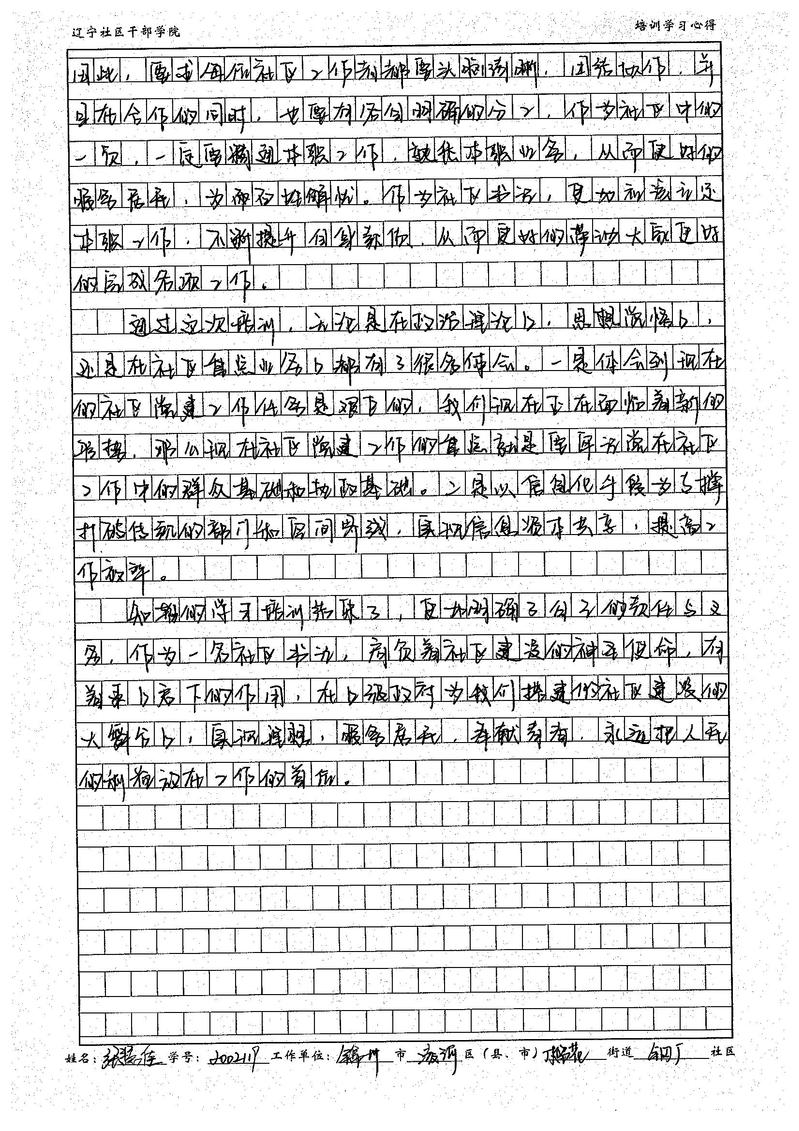 辽宁社区干部学院
培训学习心得
因此，要求每个社区工作者都要头脑清晰，团结协作，并
且在合作的同时，也要有各自明确的分工，作为社区中的
一员，一定要精通本职工作，熟悉本职业务，从而更好的
服务居民，为而百姓解忧。作为社区书记，更加应该立还
本职工作，不断提升自身素质，从而更好的带动大家更好
的完成各项工作。
通过这次培训，无论是在政治理论上，思想觉悟上，
还是在社区重点业务上都有了很多体会。一是体会到现在
的社区党建工作任务是艰巨的，我们现在正在面临着新的
形势，那么现在社区党建工作的重点就是要牢记党在社区
工作中的群众基础和执政基础。二是以信息化手段为支撑
打破传统的部门和区间界线，实现信息资本共享，提高工
作效率。
短暂的学习培训结束了，更加明确了自己的责任与义
务，作为一名社区书记，肩负着社区建设的神圣使命，有
着承上启下的作用，在上级政府为我们搭建的社区建设的
大舞台上，实现理想，服务居民，奉献青春，永远把人民
的利益放在工作的首位。
姓名： 学号：2002117 工作单位：锦州 市 凌河 区（县、市） 榴花 街道 钢厂 社区